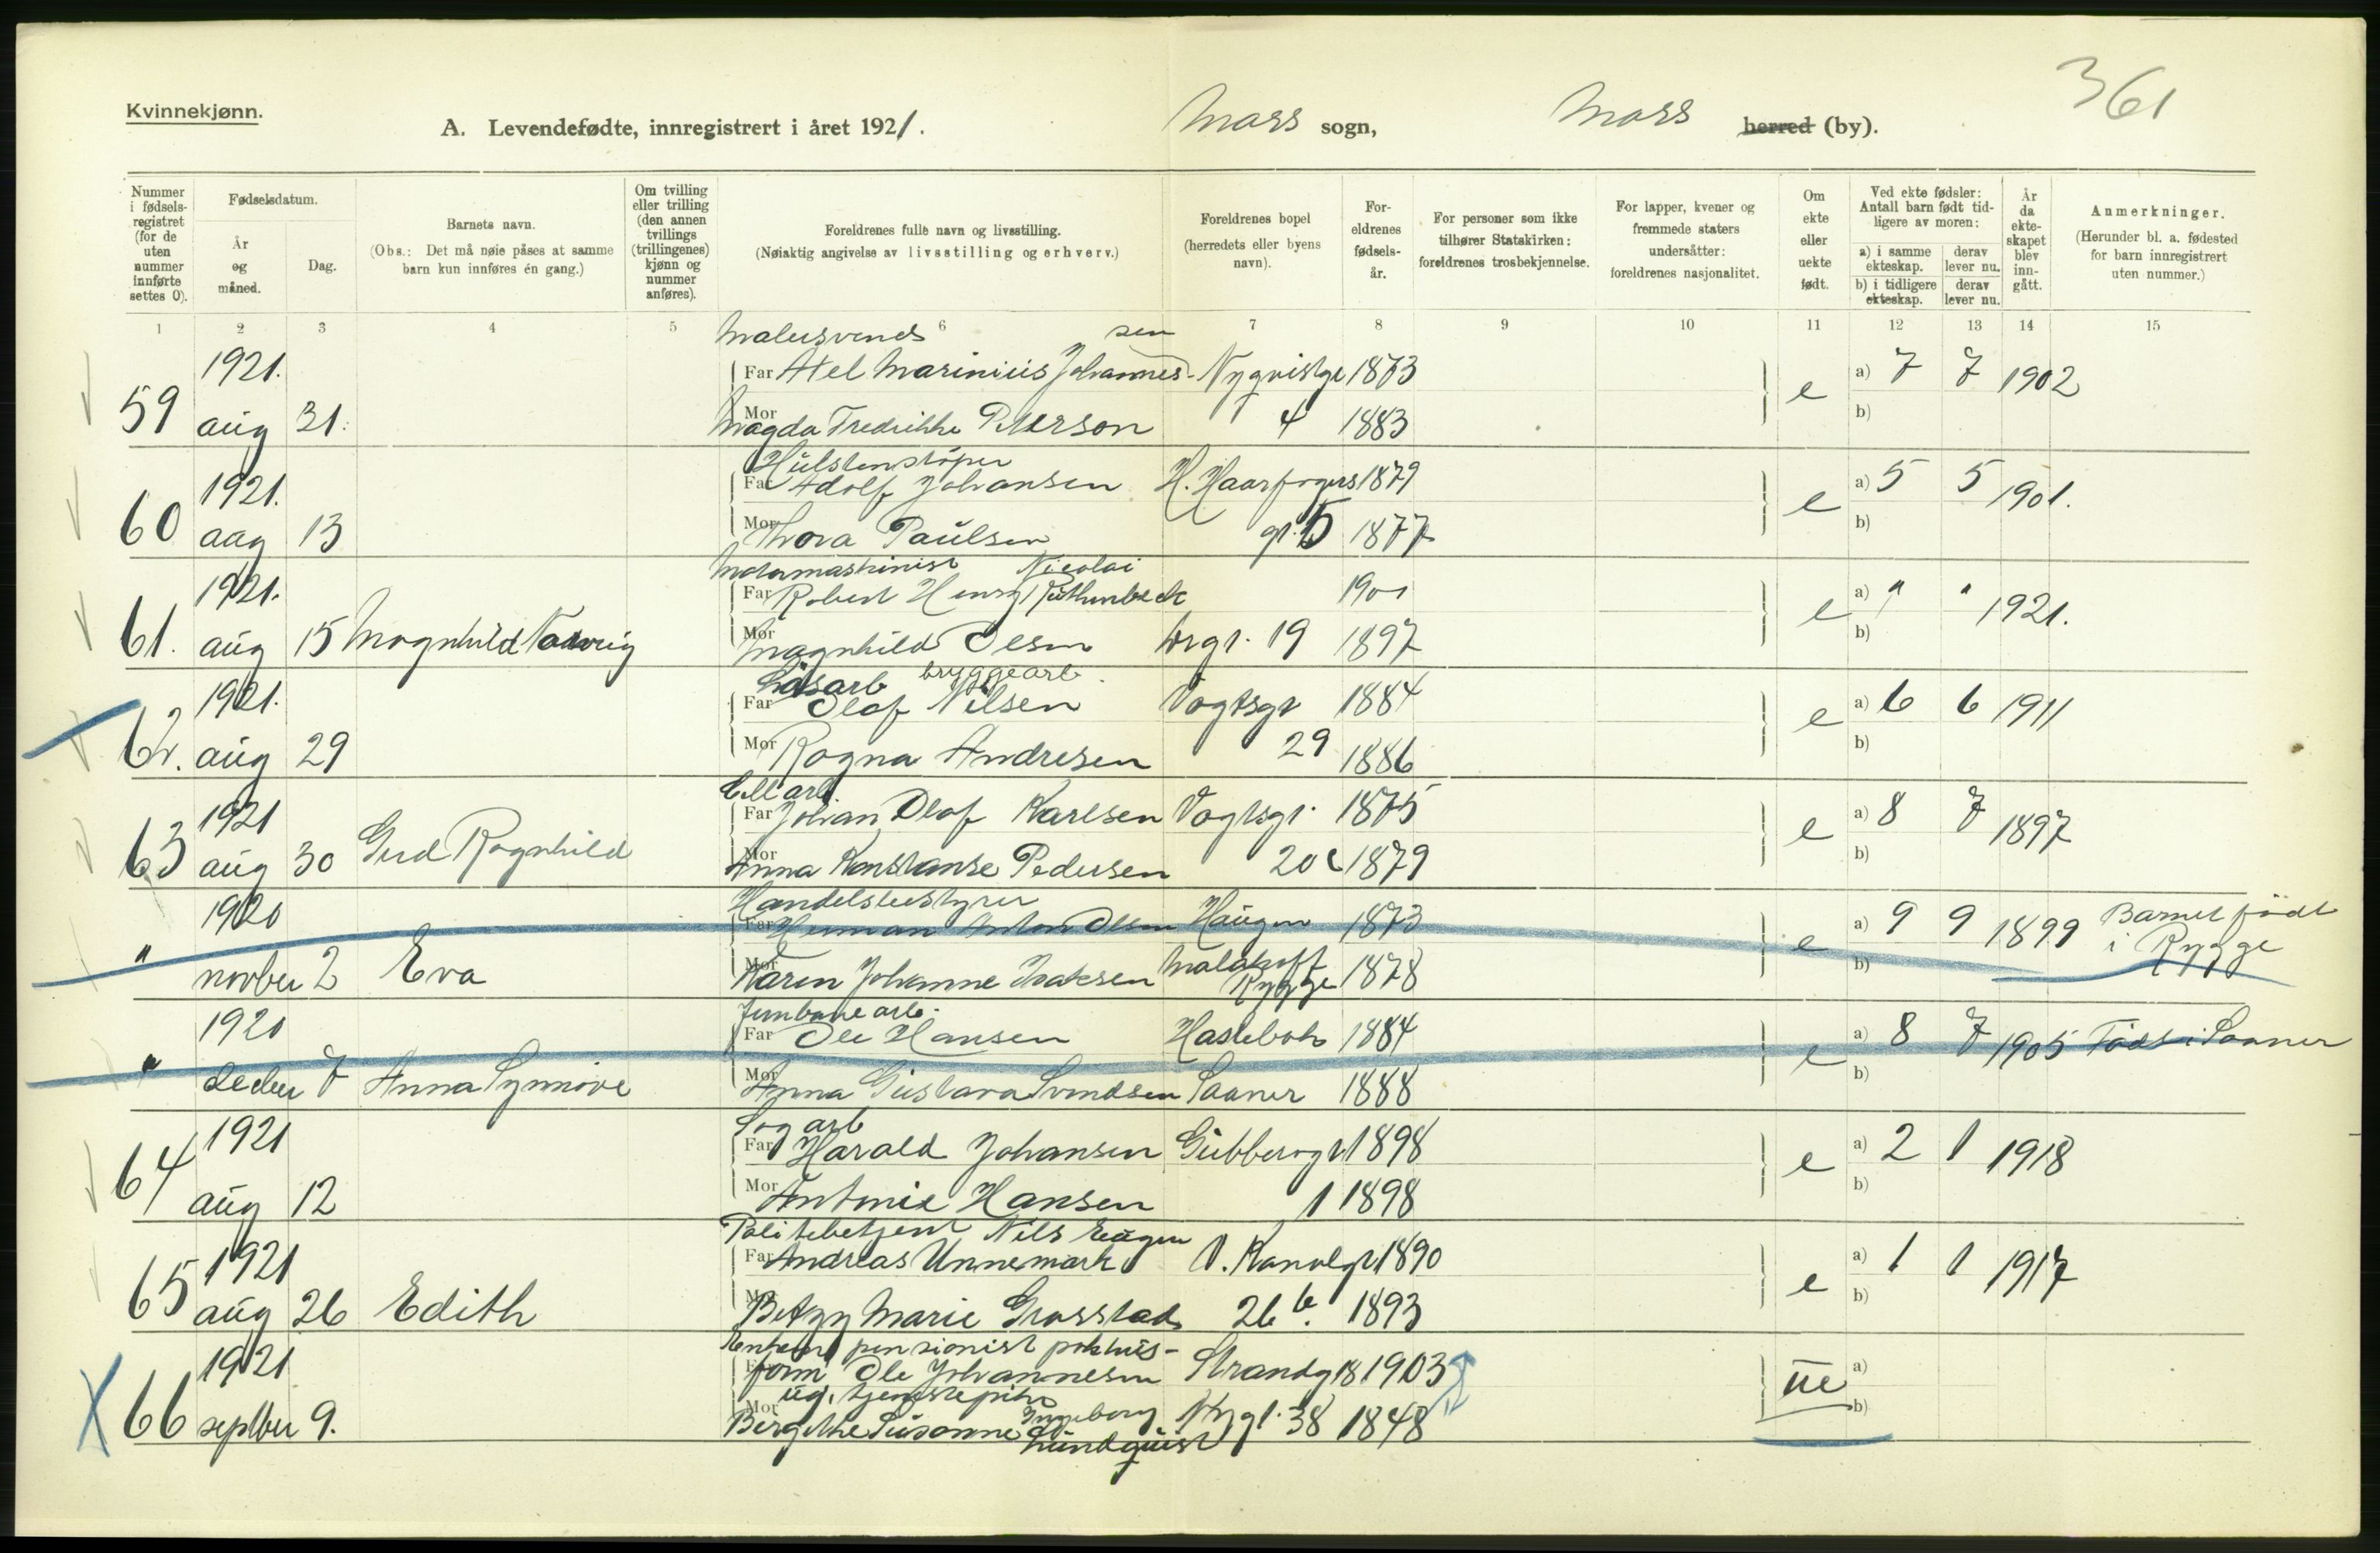 361
Kvinnekjønn.
A. Levendefødte, innregistrert i året 1921. Moss sogn, Moss herred (by).
Nummer i fødsels-registret (for de uten nummer innførte settes 0).
Fødselsdatum.
År og måned.
Dag.
Barnets navn.
(Obs.: Det må nøie påses at samme barn kun innføres én gang.)
Om tvilling eller trilling (den annen tvillings (trillingenes) kjønn og nummer anføres).
Foreldrenes fulle navn og livsstilling.
(Nøiaktig angivelse av livsstilling og erhverv.)
Foreldrenes bopel (herredets eller byens navn).
For-eldrenes fødsels-år.
For personer som ikke tilhører Statskirken: foreldrenes trosbekjennelse.
For lapper, kvener og fremmede staters undersåtter: foreldrenes nasjonalitet.
Om ekte eller uekte født.
Ved ekte fødsler: Antall barn født tid-ligere av moren:
a) i samme ekteskap. derav lever nu.
b) i tidligere ekteskap. derav lever nu.
År da ekte-skapet blev inn-gått.
Anmerkninger.
(Herunder bl. a. fødested for barn innregistrert uten nummer.)
1 2 3 4 5 6 7 8 9 10 11 12 13 14 15
Malersvends sen
1921. Far Axel Marinius Johannes- Nyqvistgt 1873 a) 7 7 1902
59 aug 31. Mor Magda Fredrikke Peterson 4 1883 e b)
Hulstenstöper
1921. Far Adolf Johansen H. Haarfagers 1879 a) 5 5 1901.
60 aug 13 Mor Thora Paulsen gt. 5 1877 e b)
Motormaskinist Nicolai
1921. Far Robert Henry 1901 a) " " 1921.
61. aug 15 Magnhild Mor Magnhild Olsen 19 1897 e b)
Løsarb bryggearb.
1921. Far Olaf Nilsen Vogtsgt 1884 a) 6 6 1911
62. aug 29 Mor Ragna Andresen 29 1886 e b)
Cell arb
1921 Far Johan Olaf Karlsen Vogtsgt. 1875 a) 8 7 1897
63 aug 30 Gerd Ragnhild Mor Anna Konstanse Pedersen 20 c 1879 e b)
Handelsbestyrer
1920 Far Herman Anton Olsen Haugen 1873 a) 9 9 1899 Barnet født
" novber 2 Eva Mor Karen Johanne Isaksen Malakoff Rygge 1878 e b) i Rygge
Jernbanearb.
1920 Far Ole Hansen Haslebok 1884 a) 8 7 1905 Født i Saaner
" decber 7 Anna Synnöve Mor Anna Gustava Svendsen Saaner 1888 e b)
Sagarb
1921 Far Harald Johansen Gubberogt 1898 a) 2 1 1918
64 aug 12 Mor Antonie Hansen 1 1898 e b)
Politibetjent Nils Eugen
1921 Far Andreas Unnemark V. Kanalgt 1890 a) 1 1 1917
65 aug 26 Edith Mor Betzy Marie Grosstad 26 b. 1893 e b)
pensionist pakhus-
1921 Far form Ole Johannesen Strandg 18 1903 a)
ug. tjenestepike
66 septber 9. Mor Bergithe Susanne Ingeborg Lundquist 38 1848 ue b)